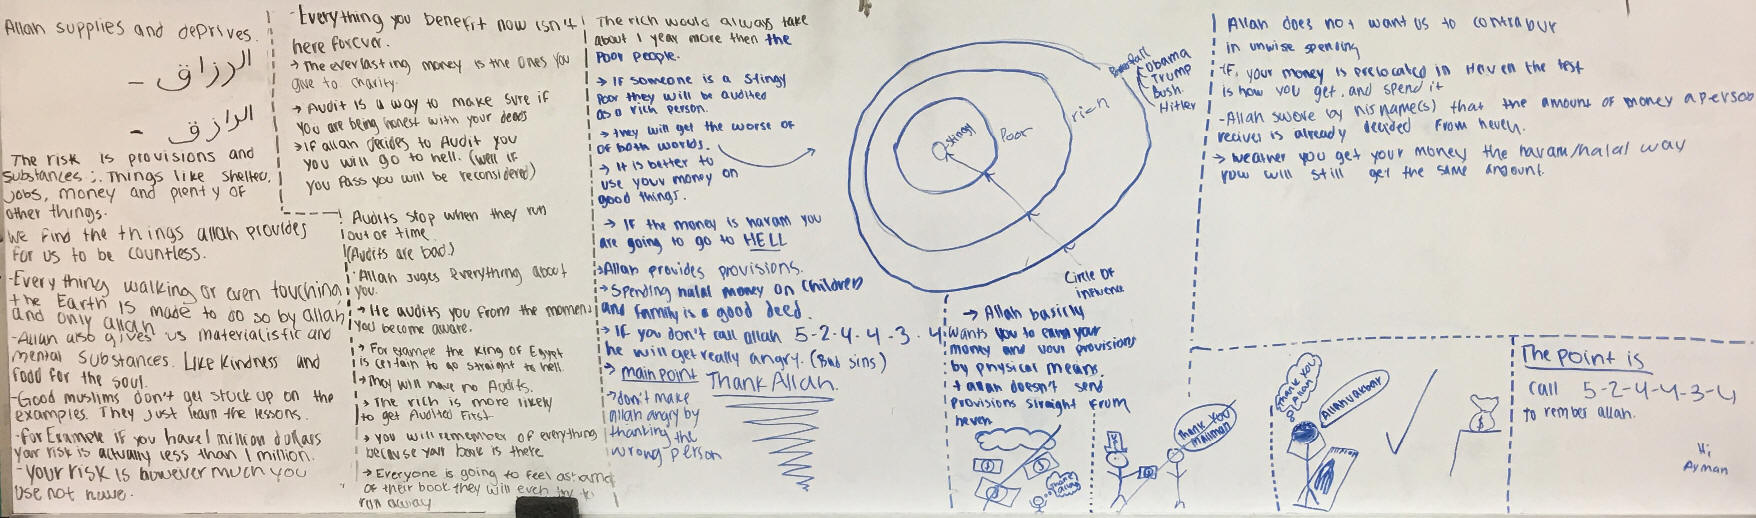 Allah supplies and deprives.
الرزاق -
الرازق -
The risk is provisions and
substances ∴ Things like shelter,
jobs, money and plenty of
other things.
We find the things allah provides
for us to be countless.
-Every thing walking or even touching
the Earth is made to do so by allah
and only allah
-Allah also gives us materialistic and
mental substances. Like kindness and
food for the soul.
-Good muslims don't get stuck up on the
examples. They just learn the lessons.
-For Example if you have 1 million dollars
your risk is actually less than 1 million.
-Your risk is however much you
use not have.
-Everything you benefit now isn't
here forever.
→ The everlasting money is the ones you
give to charity.
→ Audit is a way to make sure if
you are being honest with your deeds
→ if allah decides to Audit you
you will go to hell. (well if
you pass you will be reconsidered)
Audits stop when they run
out of time.
(Audits are bad)
Allah juges everything about
you.
→ He audits you from the moment
you become aware.
→ For example the King of Egypt
is certain to go straight to hell.
→ They will have no Audits.
→ The rich is more likely
to get Audited First
→ you will remember of everything
because your book is there
→ Everyone is going to feel ashamed
of their book they will even try to
run away
The rich would always take
about 1 year more then the
Poor people.
→ If someone is a stingy
Poor they will be audited
as a rich person.
→ they will get the worse of
of both worlds.
→ It is better to
use your money on
good things.
→ If the money is haram you
are going to go to HELL
→Allah provides provisions.
→ Spending halal money on children
and family is a good deed.
→ If you don't call allah 5-2-4-4-3-4
he will get really angry. (Bad sins)
→ main point Thank Allah.
→don't make
allah angry by
thanking the
wrong person
stingy
Poor
rich
Powerfull
Obama
Trump
Bush
Hitler
Circle of
influence
→ Allah basicly
wants you to earn your
money and your provisions
by physical means,
+ allah doesn't send
provisions straight from
heven
Thank you
allah
Thank you
mailman
Allah does not want us to contrabur
in unwise spending
-If, your money is prelocated in Heven the test
is how you get and spend it
-Allah swore by his name(s) that the amount of money a person
recives is already decided from heven.
→ weather you get your money the haram/halal way
you will still get the same amount.
Thank you
Allah
Allahuakbar
The point is
call 5-2-4-4-3-4
to rember allah.
Hi
Ayman